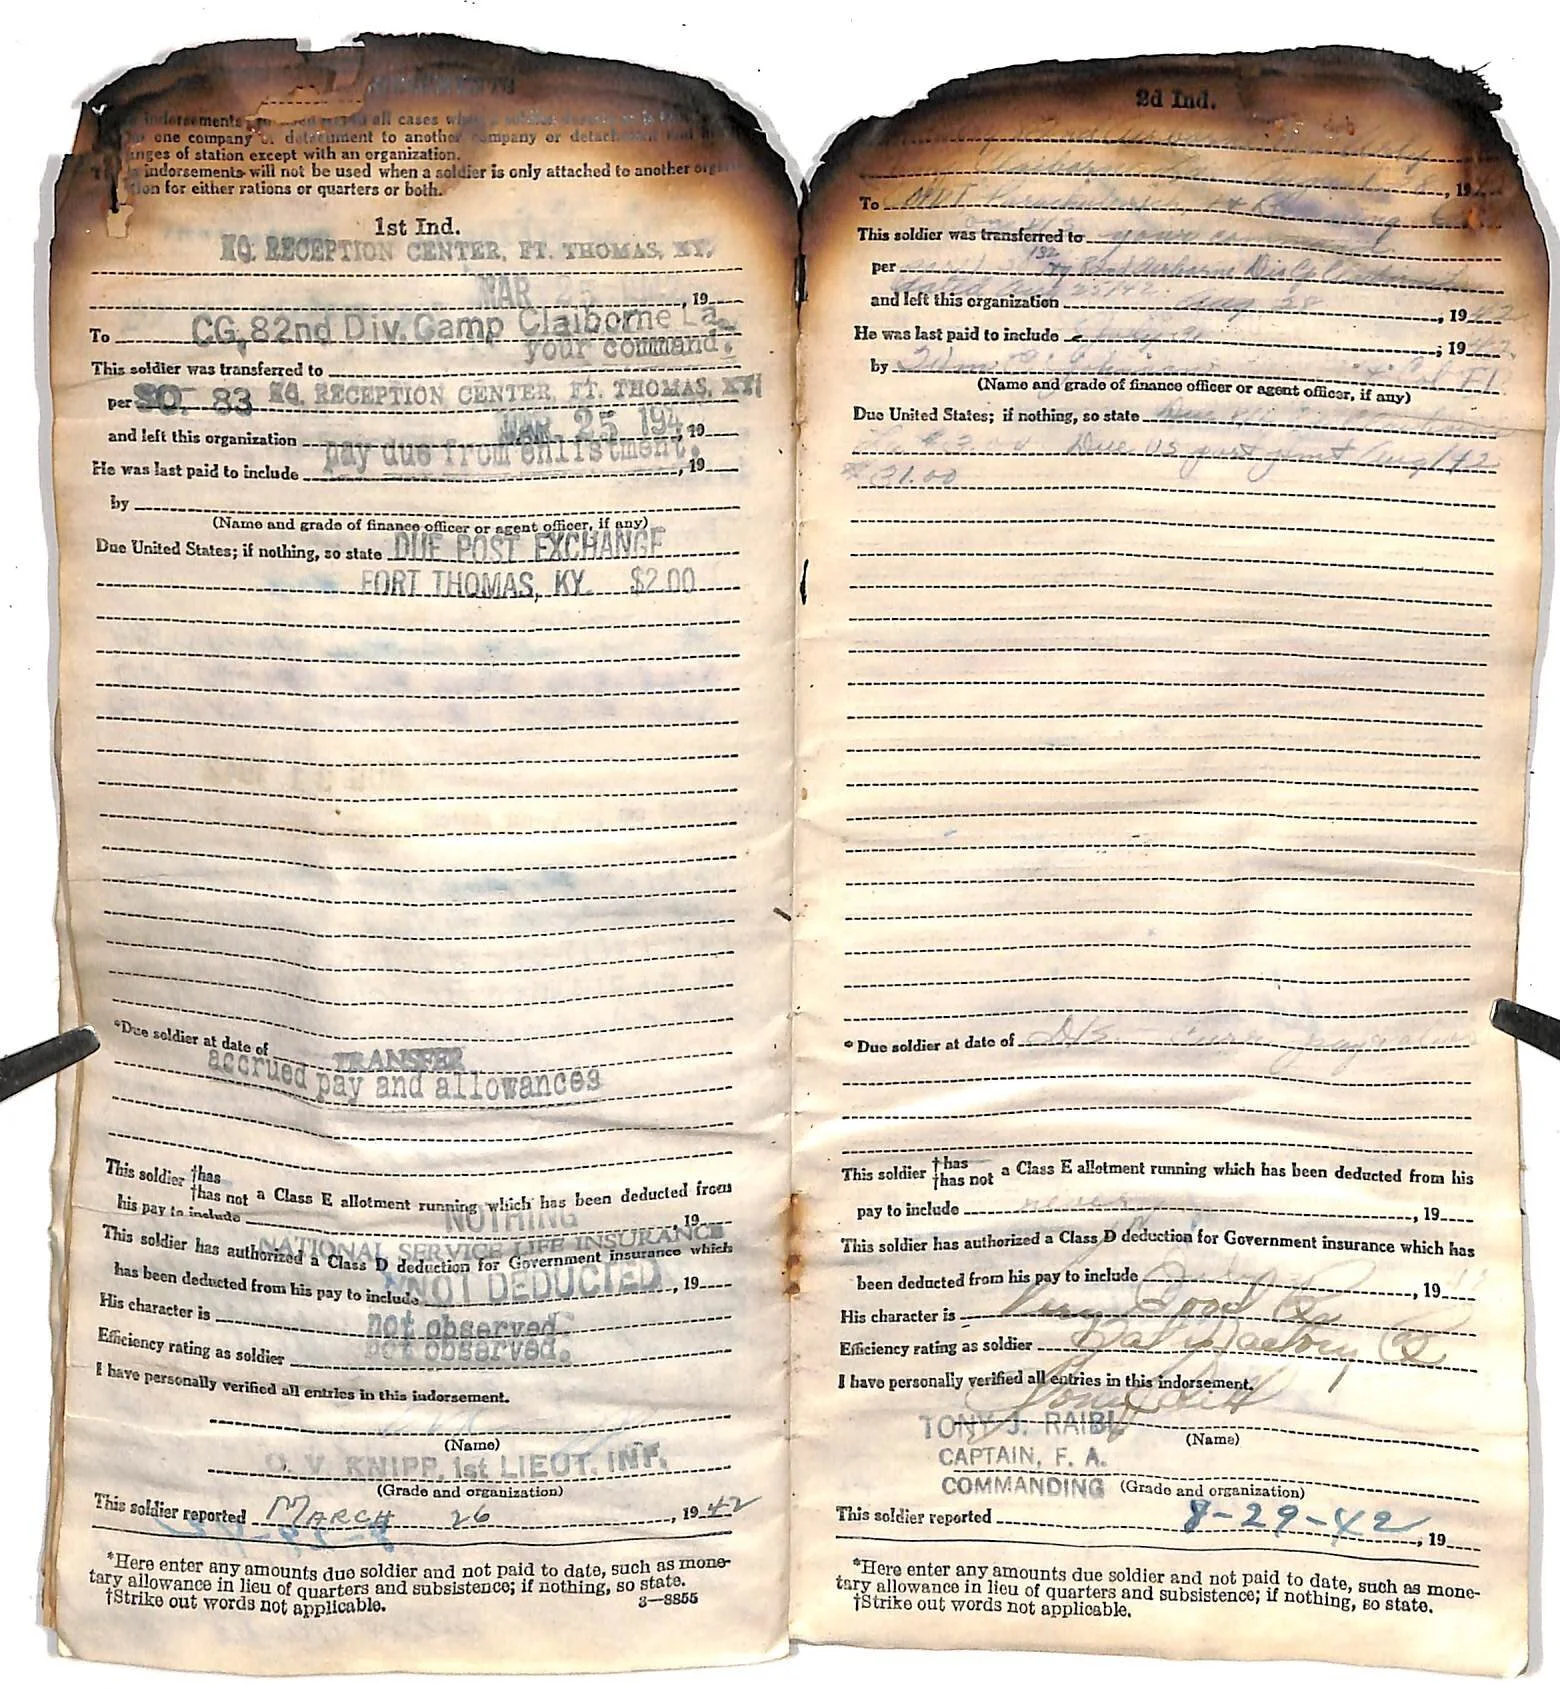 indorsements
all cases
one company
detachment to another company or detachment
anges of station except with an organization.
indorsements will not be used when a soldier is only attached to another
tion for either rations or quarters or both.
1st Ind.
HQ. RECEPTION CENTER, FT. THOMAS, KY.
MAR 25 , 19
To CG, 82nd Div. Camp Claiborne La.
your command.
This soldier was transferred to
per SO. 83 HQ. RECEPTION CENTER, FT. THOMAS, KY
and left this organization MAR 25 194 , 19
pay due from enlistment.
He was last paid to include , 19
by
(Name and grade of finance officer or agent officer, if any)
Due United States; if nothing, so state DUE POST EXCHANGE
FORT THOMAS, KY. $2.00
*Due soldier at date of TRANSFER
accrued pay and allowances
This soldier †has
†has not a Class E allotment running which has been deducted from
his pay to include NOTHING , 19
NATIONAL SERVICE LIFE INSURANCE
This soldier has authorized a Class D deduction for Government insurance which
has been deducted from his pay to include NOT DEDUCTED , 19
His character is not observed.
Efficiency rating as soldier not observed.
I have personally verified all entries in this indorsement.
(Name)
O. V. KNIPP, 1st LIEUT. INF.
(Grade and organization)
This soldier reported MARCH 26 , 1942
*Here enter any amounts due soldier and not paid to date, such as mone-
tary allowance in lieu of quarters and subsistence; if nothing, so state.
†Strike out words not applicable. 3—8855
2d Ind.
Claiborne La. August 28, 19
To
This soldier was transferred to your command
per 132 Hq 82nd Airborne Div Cp Claiborne
dated Aug 25/42
and left this organization Aug 28 , 1942
He was last paid to include July 31 ; 1942
by
(Name and grade of finance officer or agent officer, if any)
Due United States; if nothing, so state
$3.00 Due US Aug/42
$31.00
* Due soldier at date of
This soldier †has
†has not a Class E allotment running which has been deducted from his
pay to include never , 19
This soldier has authorized a Class D deduction for Government insurance which has
been deducted from his pay to include , 19
His character is Very Good
Efficiency rating as soldier Satisfactory
I have personally verified all entries in this indorsement.
TONY J. RAIBL
(Name)
CAPTAIN, F. A.
COMMANDING (Grade and organization)
This soldier reported 8-29-42 , 19
*Here enter any amounts due soldier and not paid to date, such as mone-
tary allowance in lieu of quarters and subsistence; if nothing, so state.
†Strike out words not applicable.